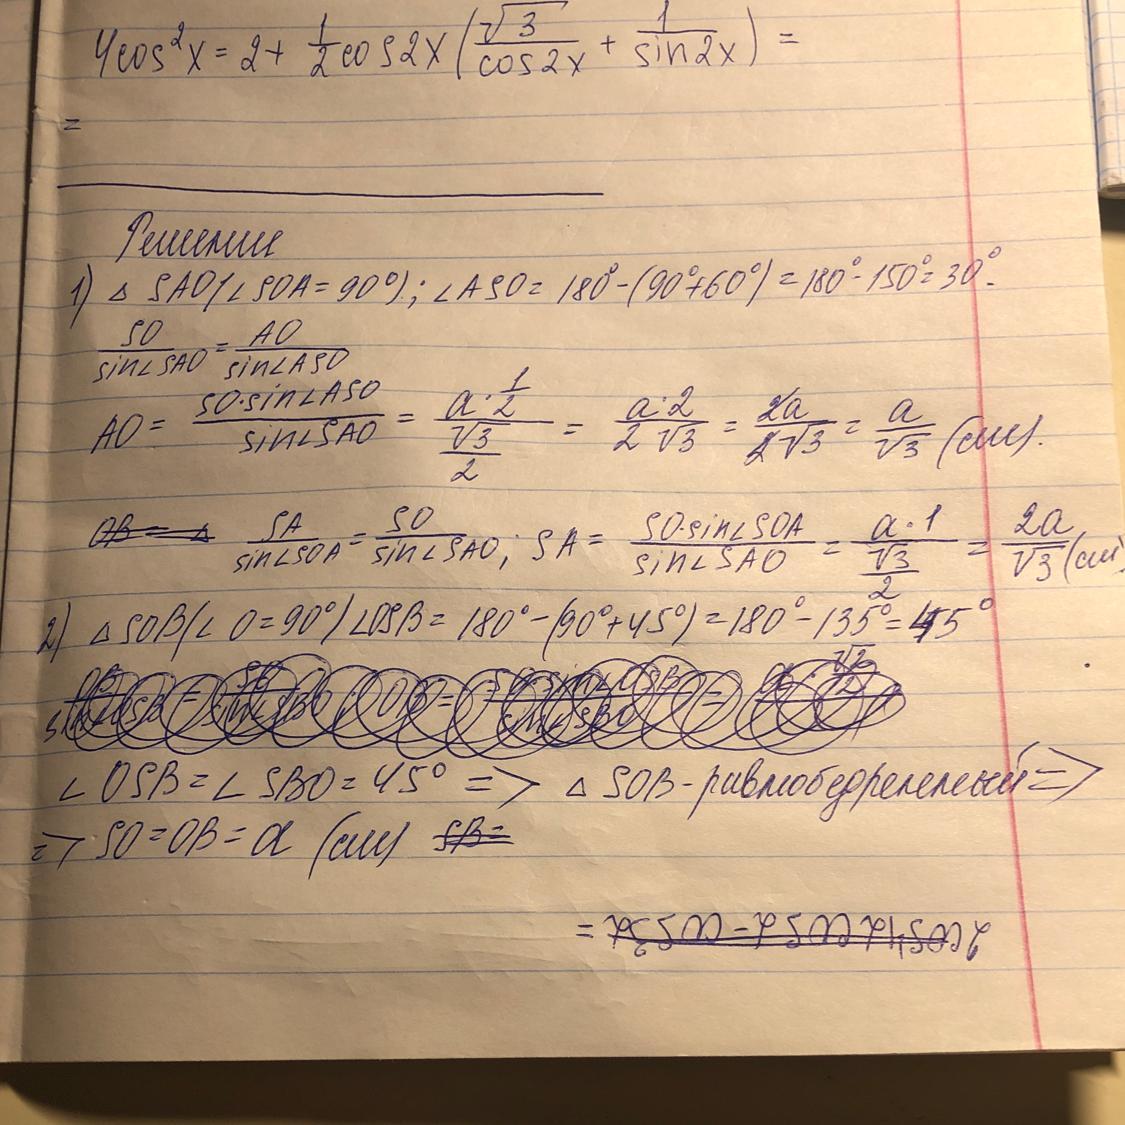 4cos²x = 2 + 1/2 cos2x (√3/cos2x + 1/sin2x) =
=
Решение
1) △ SAO (∠SOA = 90°); ∠ASO = 180° - (90° + 60°) = 180° - 150° = 30°.
SO/sin∠SAO = AO/sin∠ASO
AO = SO·sin∠ASO/sin∠SAO = (a·1/2)/(√3/2) = a·2/2√3 = 2a/2√3 = a/√3 (см).
OB = △ SA/sin∠SOA = SO/sin∠SAO; SA = SO·sin∠SOA/sin∠SAO = (a·1)/(√3/2) = 2a/√3 (см)
2) △SOB (∠O = 90°) ∠OSB = 180° - (90° + 45°) = 180° - 135° = 45°
∠OSB = ∠SBO = 45° => △ SOB - равнобедренный =>
=> SO = OB = a (см) SB =